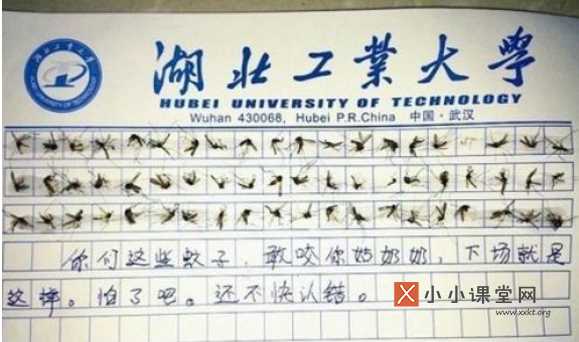 湖北工業大學
HUBEI UNIVERSITY OF TECHNOLOGY
Wuhan 430068, Hubei P.R.China 中国·武汉
你们这些蚊子，敢咬你姑奶奶，下场就是
这样。怕了吧。还不快认错。
小小课堂网
www.xxkt.org